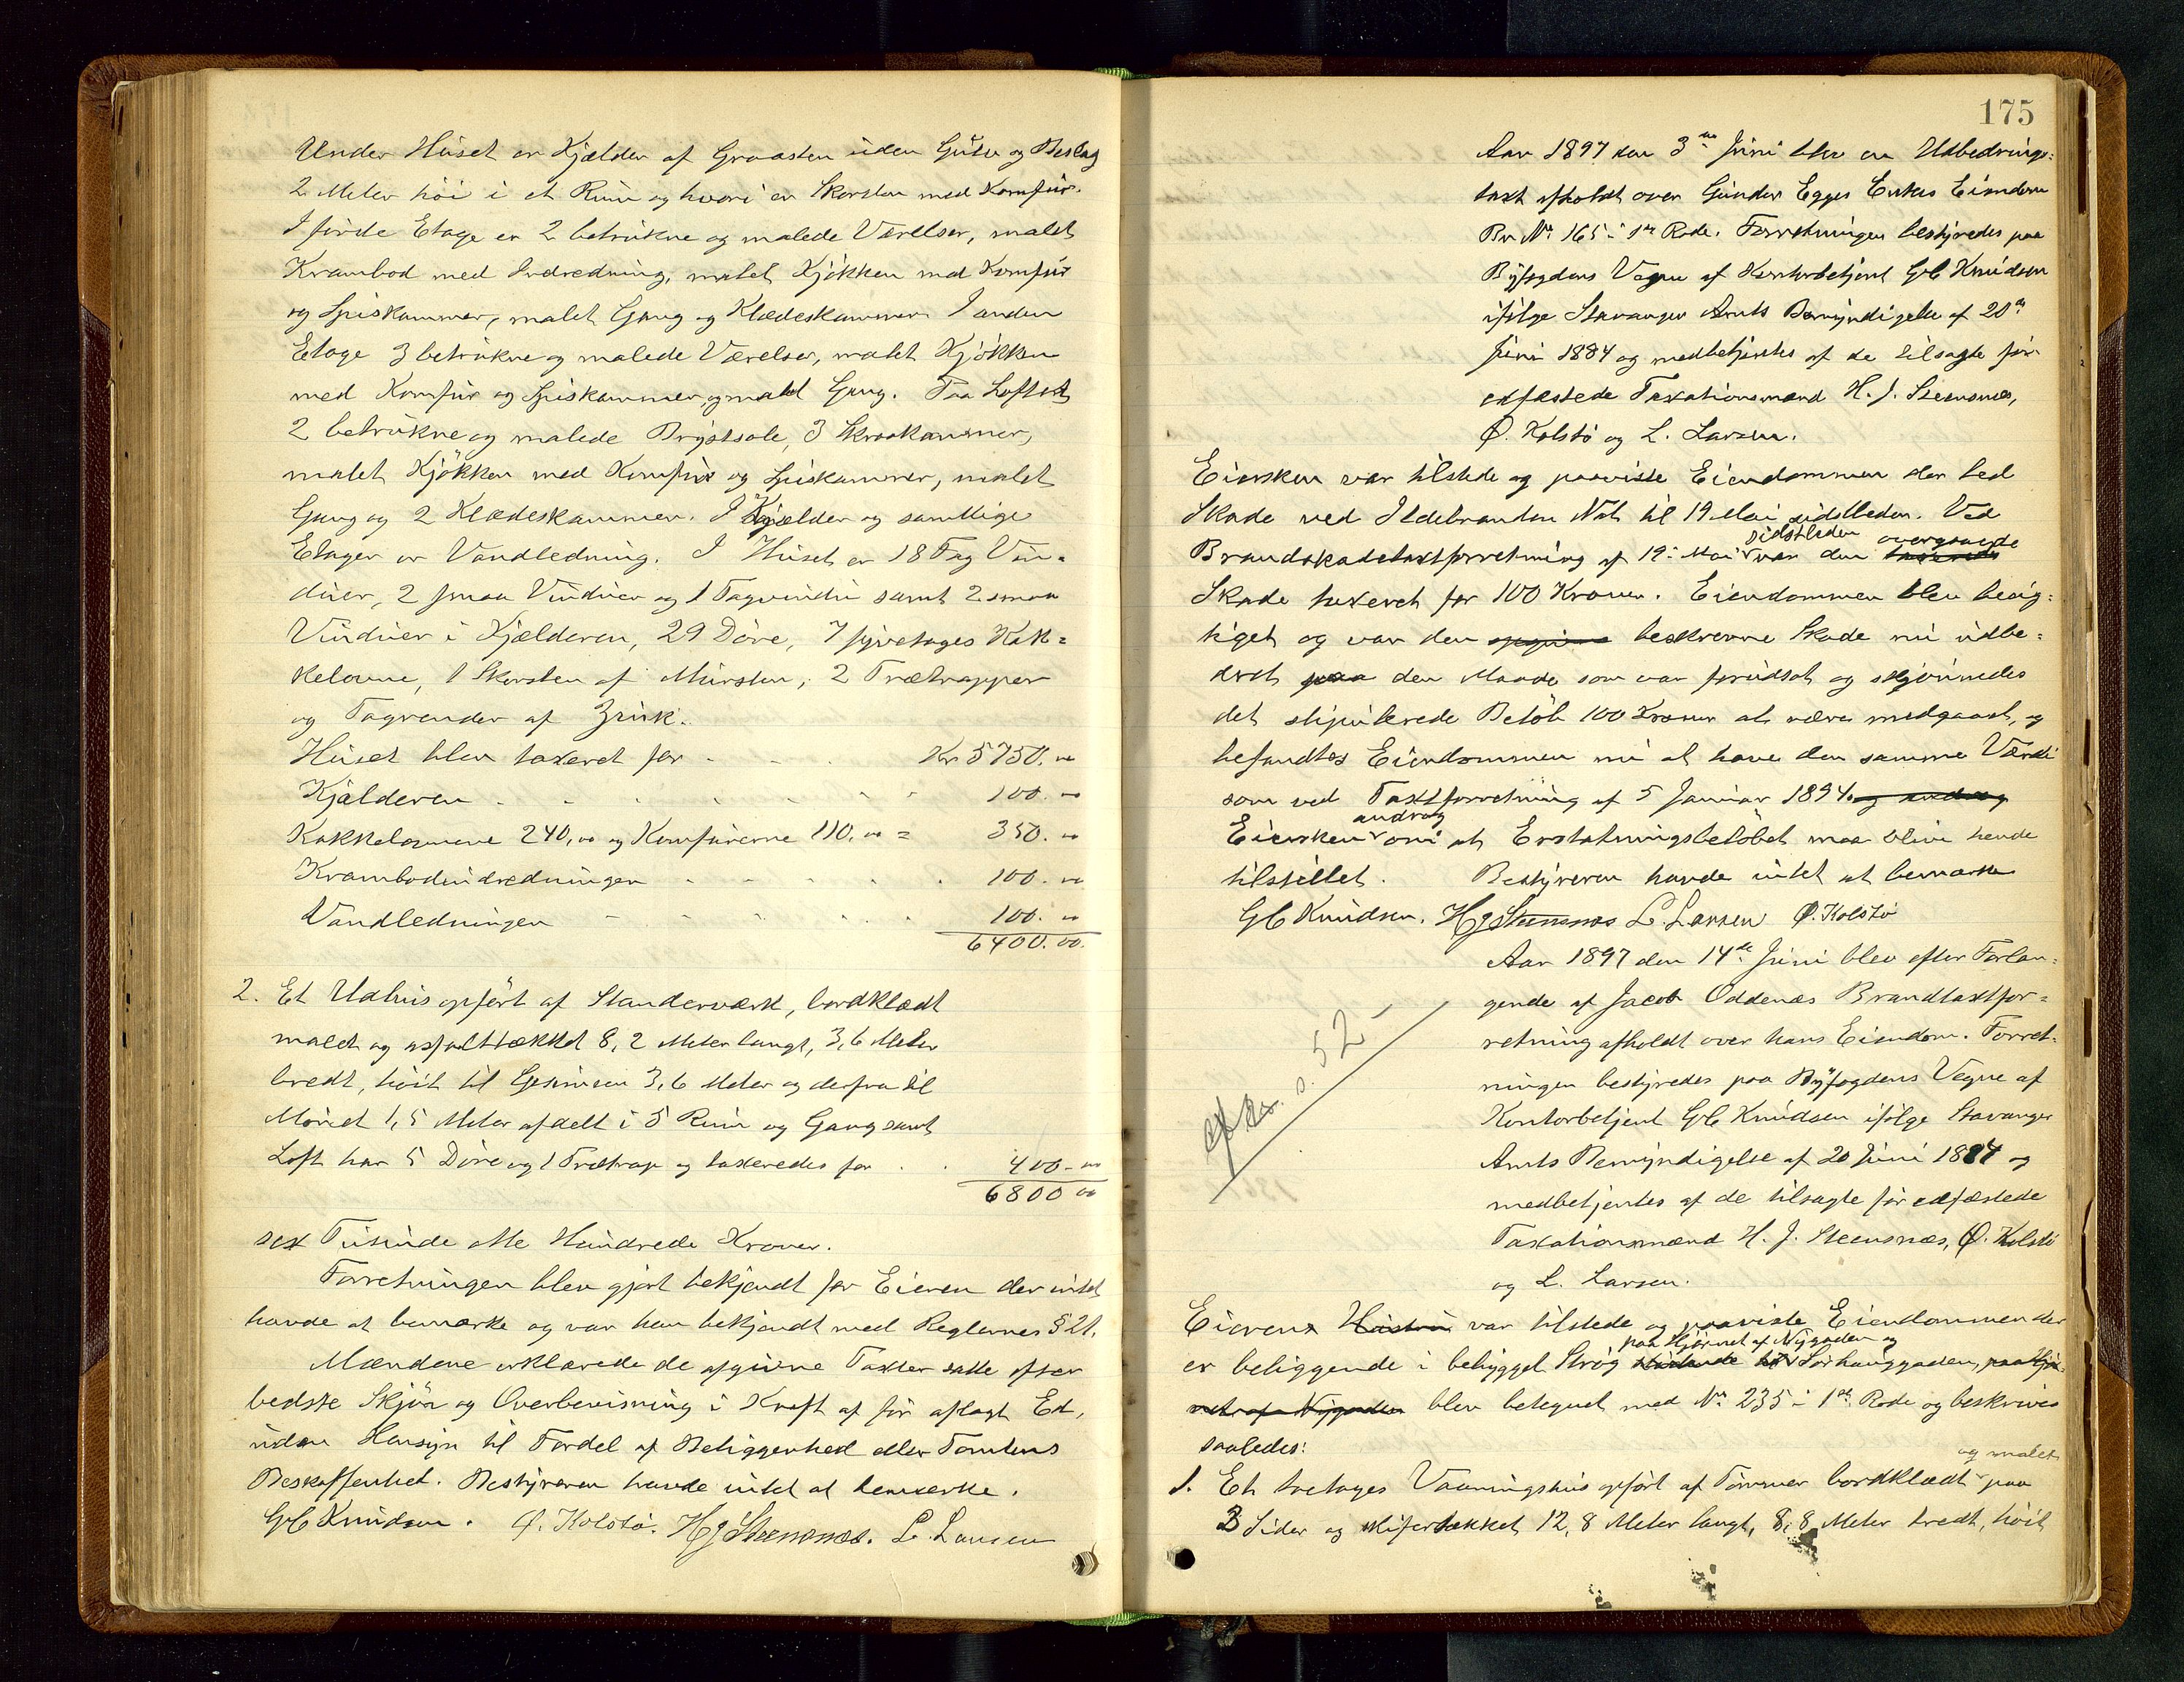 Under Huset er Kjælder af Graasten uden Gulv og Beslag
2 Meter höi i et Rum og hvori er Skorsten med Komfur.
I förste Etage er 2 betrukne og malede Værelser, malet
Krambod med Indredning, malet Kjökken med Komfur
og Spiskammer, malet Gang og Klædeskammer. I anden
Etage 3 betrukne og malede Værelser, malet Kjökken
med Komfur og Spiskammer, og malet Gang. Paa Loftet
2 betrukne og malede Brystsale, 3 Skraakammer,
malet Kjökken med Komfur og Spiskammer, malet
Gang og 2 Klædeskammer. I Kjælder og samtlige
Etager er Vandledning. I Huset er 18 Fag Vin-
duer, 2 smaa Vinduer og 1 Tagvindu samt 2 smaa
Vinduer i Kjælderen, 29 Döre, 7 fyretages Kak=
kelovne, 1 Skorsten af Mursten, 2 Trætrapper
og Tagrender af Zink.
Huset blev taxeret for Kr 5750.00
Kjælderen 100.00
Kakkelovnene 240,00 og Komfurerne 110.00 = 350.00
Krambodindredningen 100.00
Vandledningen 100.00
6400.00.
2. Et Udhus opfört af Standerværk, bordklædt
malet og asfalttækket 8,2 Meter langt, 3,6 Meter
bredt, höit til Gesimsen 3,6 Meter og derfra til
Mönet 1,5 Meter afdelt i 5 Rum og Gang samt
Loft har 5 Döre og 1 Trætrap og taxeredes for 400.00
6800 00
sex Tusinde otte Hundrede Kroner.
Forretningen blev gjort bekjendt for Eieren der intet
havde at bemærke og var han bekjendt med Reglernes § 21.
Mændene erklærede de afgivne Taxter satte efter
bedste Skjön og Overbevisning i Kraft af för aflagt Ed,
uden Hensyn til Fordel af Beliggenhed eller Tomtens
Beskaffenhed. Bestyreren havde intet at bemærke.
GC Knudsen. Ö. Kolstö. HJ Steensnæs. L. Larsen
175
Aar 1897 den 3die Juni blev en Udbedrings=
taxt afholdt over Gunder Egges Enkes Eiendom
Br No 165 i 1ste Rode. Forretningen bestyredes paa
Byfogdens Vegne af Kontorbetjent GC Knudsen
ifölge Stavanger Amts Bemyndigelse af 20de
Juni 1884 og medbetjentes af de tilsagte för
edfæstede Taxationsmænd H. J. Steensnæs,
Ö. Kolstö og L. Larsen.
Eiersken var tilstede og paaviste Eiendommen der led
Skade ved Ildebranden Nat til 19 Mai sidstleden. Ved
sidstleden overgaaede
Brandskadetaxtforretning af 19 Mai var den
Skade taxeret for 100 Kroner. Eiendommen blev besig=
tiget og var den beskrevne Skade nu udbe=
dret paa den Maade som var forudsat og skjönnedes
det stipulerede Belöb 100 Kroner at være medgaaet, og
befandtes Eiendommen nu at have den samme Værdi
som ved Taxtforretning af 5 Januar 1894. og androg
androg
Eiersken om at Erstatningsbelöbet maa blive hende
tilstillet. Bestyreren havde intet at bemærke
GC Knudsen. HJ Steensnæs L. Larsen Ö. Kolstö
Aar 1897 den 14de Juni blev efter Forlan=
gende af Jacob Oddenæs Brandtaxtfor=
retning afholdt over hans Eiendom. Forret-
ningen bestyredes paa Byfogdens Vegne af
Kontorbetjent GC Knudsen ifölge Stavanger
Amts Bemyndigelse af 20 Juni 1884 og
medbetjentes af de tilsagte för edfæstede
Taxationsmænd H. J. Steensnæs, Ö. Kolstö
og L. Larsen.
s. 52
Eierens Hustru var tilstede og paaviste Eiendommen der
paa Hjörnet af Nygaden og
er beliggende i bebygget Strög Sörhauggaden, paa Hjör-
net af Nygaden blev betegnet med No 235 i 1ste Rode og beskrives
saaledes:
og malet
1. Et toetages Vaaningshus opfört af Tömmer bordklædt paa
3 Sider og skifertækket 12,8 Meter langt, 8,8 Meter bredt, höit